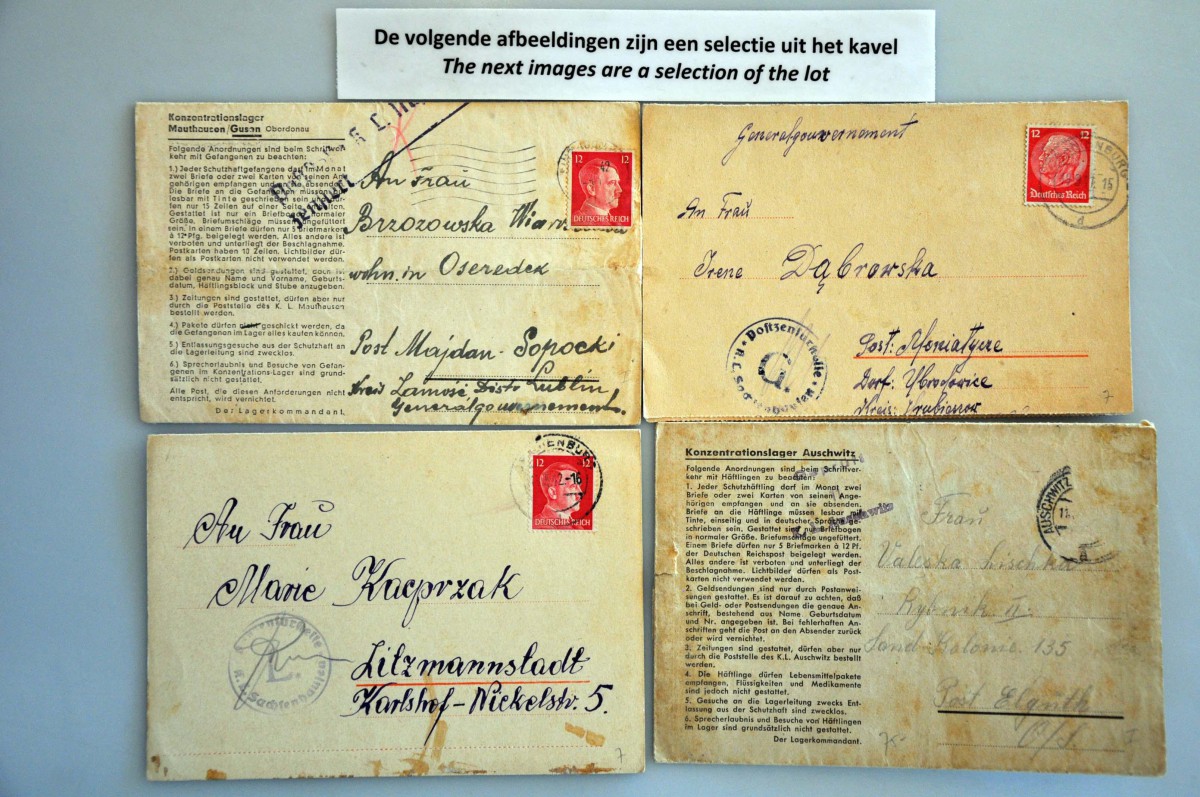 De volgende afbeeldingen zijn een selectie uit het kavel
The next images are a selection of the lot
Konzentrationslager
Mauthausen/Gusen Oberdonau
Folgende Anordnungen sind beim Schriftver-
kehr mit Gefangenen zu beachten:
1.) Jeder Schutzhaftgefangene darf im Monat
zwei Briefe oder zwei Karten von seinen An-
gehörigen empfangen und an sie absenden.
Die Briefe an die Gefangenen müssen gut
lesbar mit Tinte geschrieben sein und dür-
fen nur 15 Zeilen auf einer Seite enthalten.
Gestattet ist nur ein Briefbogen normaler
Größe. Briefumschläge müssen ungefüttert
sein. In einem Briefe dürfen nur 5 Briefmarken
à 12 Pfg. beigelegt werden. Alles andere ist
verboten und unterliegt der Beschlagnahme.
Postkarten haben 10 Zeilen. Lichtbilder dür-
fen als Postkarten nicht verwendet werden.
2.) Geldsendungen sind gestattet, doch ist
dabei genau Name und Vorname, Geburts-
datum, Häftlingsblock und Stube anzugeben.
3.) Zeitungen sind gestattet, dürfen aber nur
durch die Poststelle des K. L. Mauthausen
bestellt werden.
4.) Pakete dürfen nicht geschickt werden, da
die Gefangenen im Lager alles kaufen können.
5.) Entlassungsgesuche aus der Schutzhaft an
die Lagerleitung sind zwecklos.
6.) Sprecherlaubnis und Besuche von Gefan-
genen im Konzentrations-Lager sind grund-
sätzlich nicht gestattet.
Alle Post, die diesen Anforderungen nicht
entspricht, wird vernichtet.
Der Lagerkommandant.
zensiert
12 12
DEUTSCHES REICH
An Frau
Brzozowska
wohn. in Oseredek
Post Majdan-Sopocki
Kreis Zamość Distr. Lublin
Generalgouvernement.
Generalgouvernement
12 12
Deutsches Reich
15
d
An Frau
Irene Dąbrowska
Postzensurstelle
K.L. Sachsenhausen
Post:
Dorf:
Kreis: Hrubieszow
7
12 12
DEUTSCHES REICH
An Frau
Marie Kacprzak
Litzmannstadt
Karlshof-Nickelstr. 5.
Postzensurstelle
K.L. Sachsenhausen
7
Konzentrationslager Auschwitz
Folgende Anordnungen sind beim Schriftver-
kehr mit Häftlingen zu beachten:
1. Jeder Schutzhäftling darf im Monat zwei
Briefe oder zwei Karten von seinen Ange-
hörigen empfangen und an sie absenden.
Briefe an die Häftlinge müssen lesbar mit
Tinte, einseitig und in deutscher Sprache ge-
schrieben sein. Gestattet sind nur Briefbogen
in normaler Größe. Briefumschläge ungefüttert.
Einem Briefe dürfen nur 5 Briefmarken à 12 Pf.
der Deutschen Reichspost beigelegt werden.
Alles andere ist verboten und unterliegt der
Beschlagnahme. Lichtbilder dürfen als Post-
karten nicht verwendet werden.
2. Geldsendungen sind nur durch Postanwei-
sungen gestattet. Es ist darauf zu achten, daß
bei Geld- oder Postsendungen die genaue An-
schrift, bestehend aus Name Geburtsdatum
und Nr. angegeben ist. Bei fehlerhaften An-
schriften geht die Post an den Absender zurück
oder wird vernichtet.
3. Zeitungen sind gestattet, dürfen aber nur
durch die Poststelle des K.L. Auschwitz bestellt
werden.
4. Die Häftlinge dürfen Lebensmittelpakete
empfangen, Flüssigkeiten und Medikamente
sind jedoch nicht gestattet.
5. Gesuche an die Lagerleitung zwecks Ent-
lassung aus der Schutzhaft sind zwecklos.
6. Sprecherlaubnis und Besuche von Häftlingen
im Lager sind grundsätzlich nicht gestattet.
Der Lagerkommandant.
AUSCHWITZ
Frau
Valeska Lischka
Rybnik II.
Sand-Kolonie 135
Post Elguth
O/S.